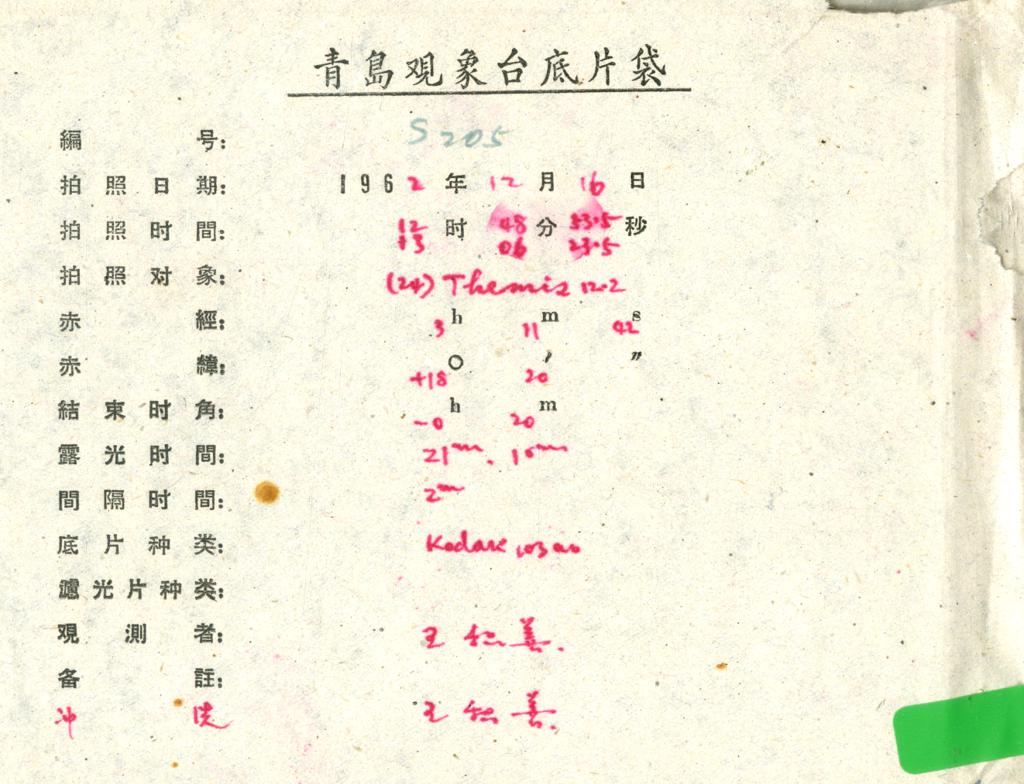 青島观象台底片袋
編号: S205
拍照日期: 1962年12月16日
拍照时間: 12时48分53.5秒
13 06 23.5
拍照对象: (24) Themis 12.2
赤經: 3h 11m 42s
赤緯: +18° 20′ ″
結束时角: -0h 20m
露光时間: 21m. 10m
間隔时間: 2m
底片种类: Kodak 103a0
濾光片种类:
观測者: 王 善.
备註:
冲洗 王 善.